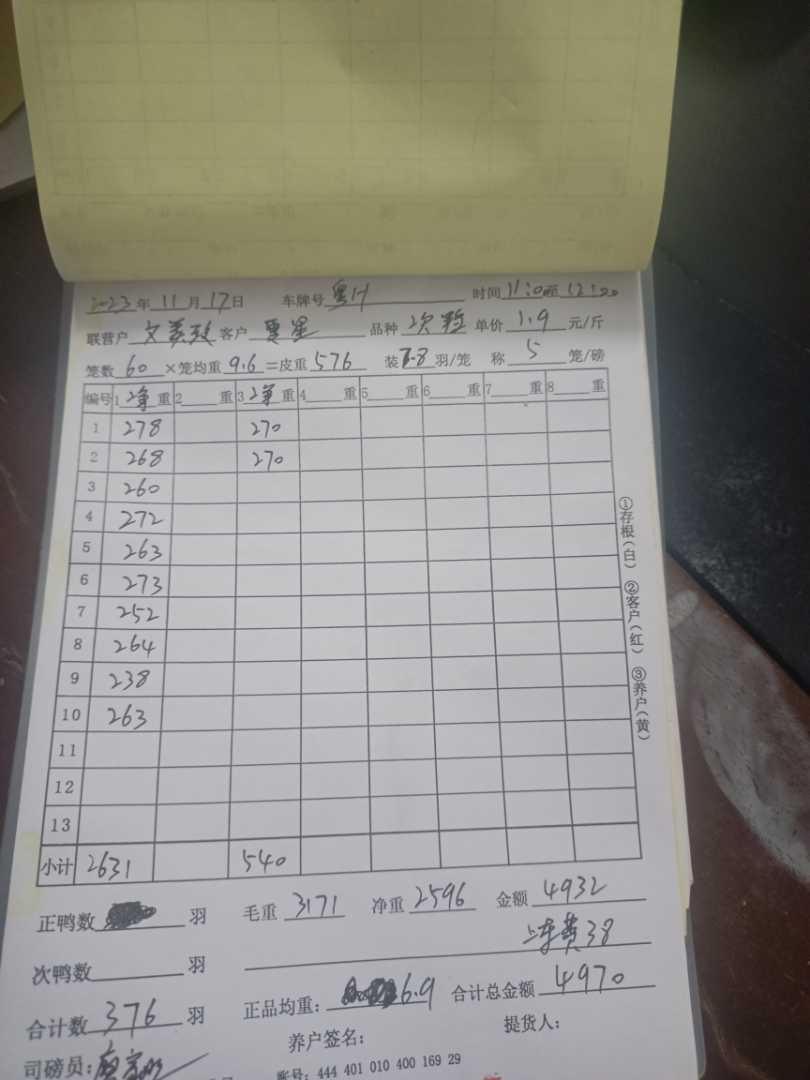 2023年11月17日 车牌号粤H 时间11:0至12:20
联营户 客户 品种次 单价1.9元/斤
笼数60×笼均重9.6=皮重576 装7.8羽/笼 称5笼/磅
编号 1 净重 2 重 3 净重 4 重 5 重 6 重 7 重 8 重
1 278 270
2 268 270
3 260
4 272
5 263
6 273
7 252
8 264
9 238
10 263
11
12
13
小计 2631 540
①存根(白) ②客户(红) ③养户(黄)
正鸭数 羽 毛重3171 净重2596 金额4932
次鸭数 羽 车费38
合计数376羽 正品均重:6.9 合计总金额4970
养户签名: 提货人:
司磅员:
账号: 444 401 010 400 169 29